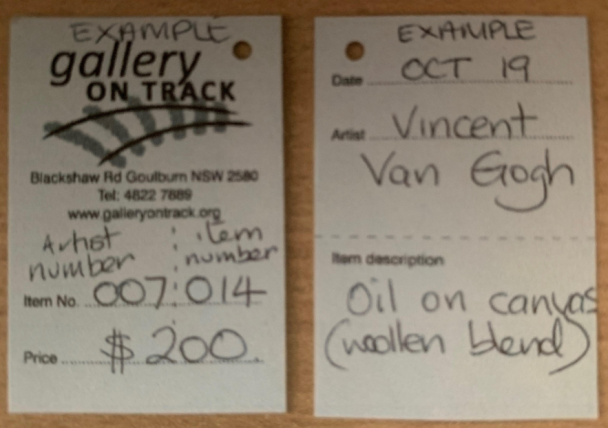 EXAMPLE
gallery
ON TRACK
Blackshaw Rd Goulburn NSW 2580
Tel: 4822 7889
www.galleryontrack.org
Artist number : item number
Item No. 007:014
Price $200.
EXAMPLE
Date OCT 19
Artist Vincent
Van Gogh
Item description
Oil on canvas
(woollen blend)